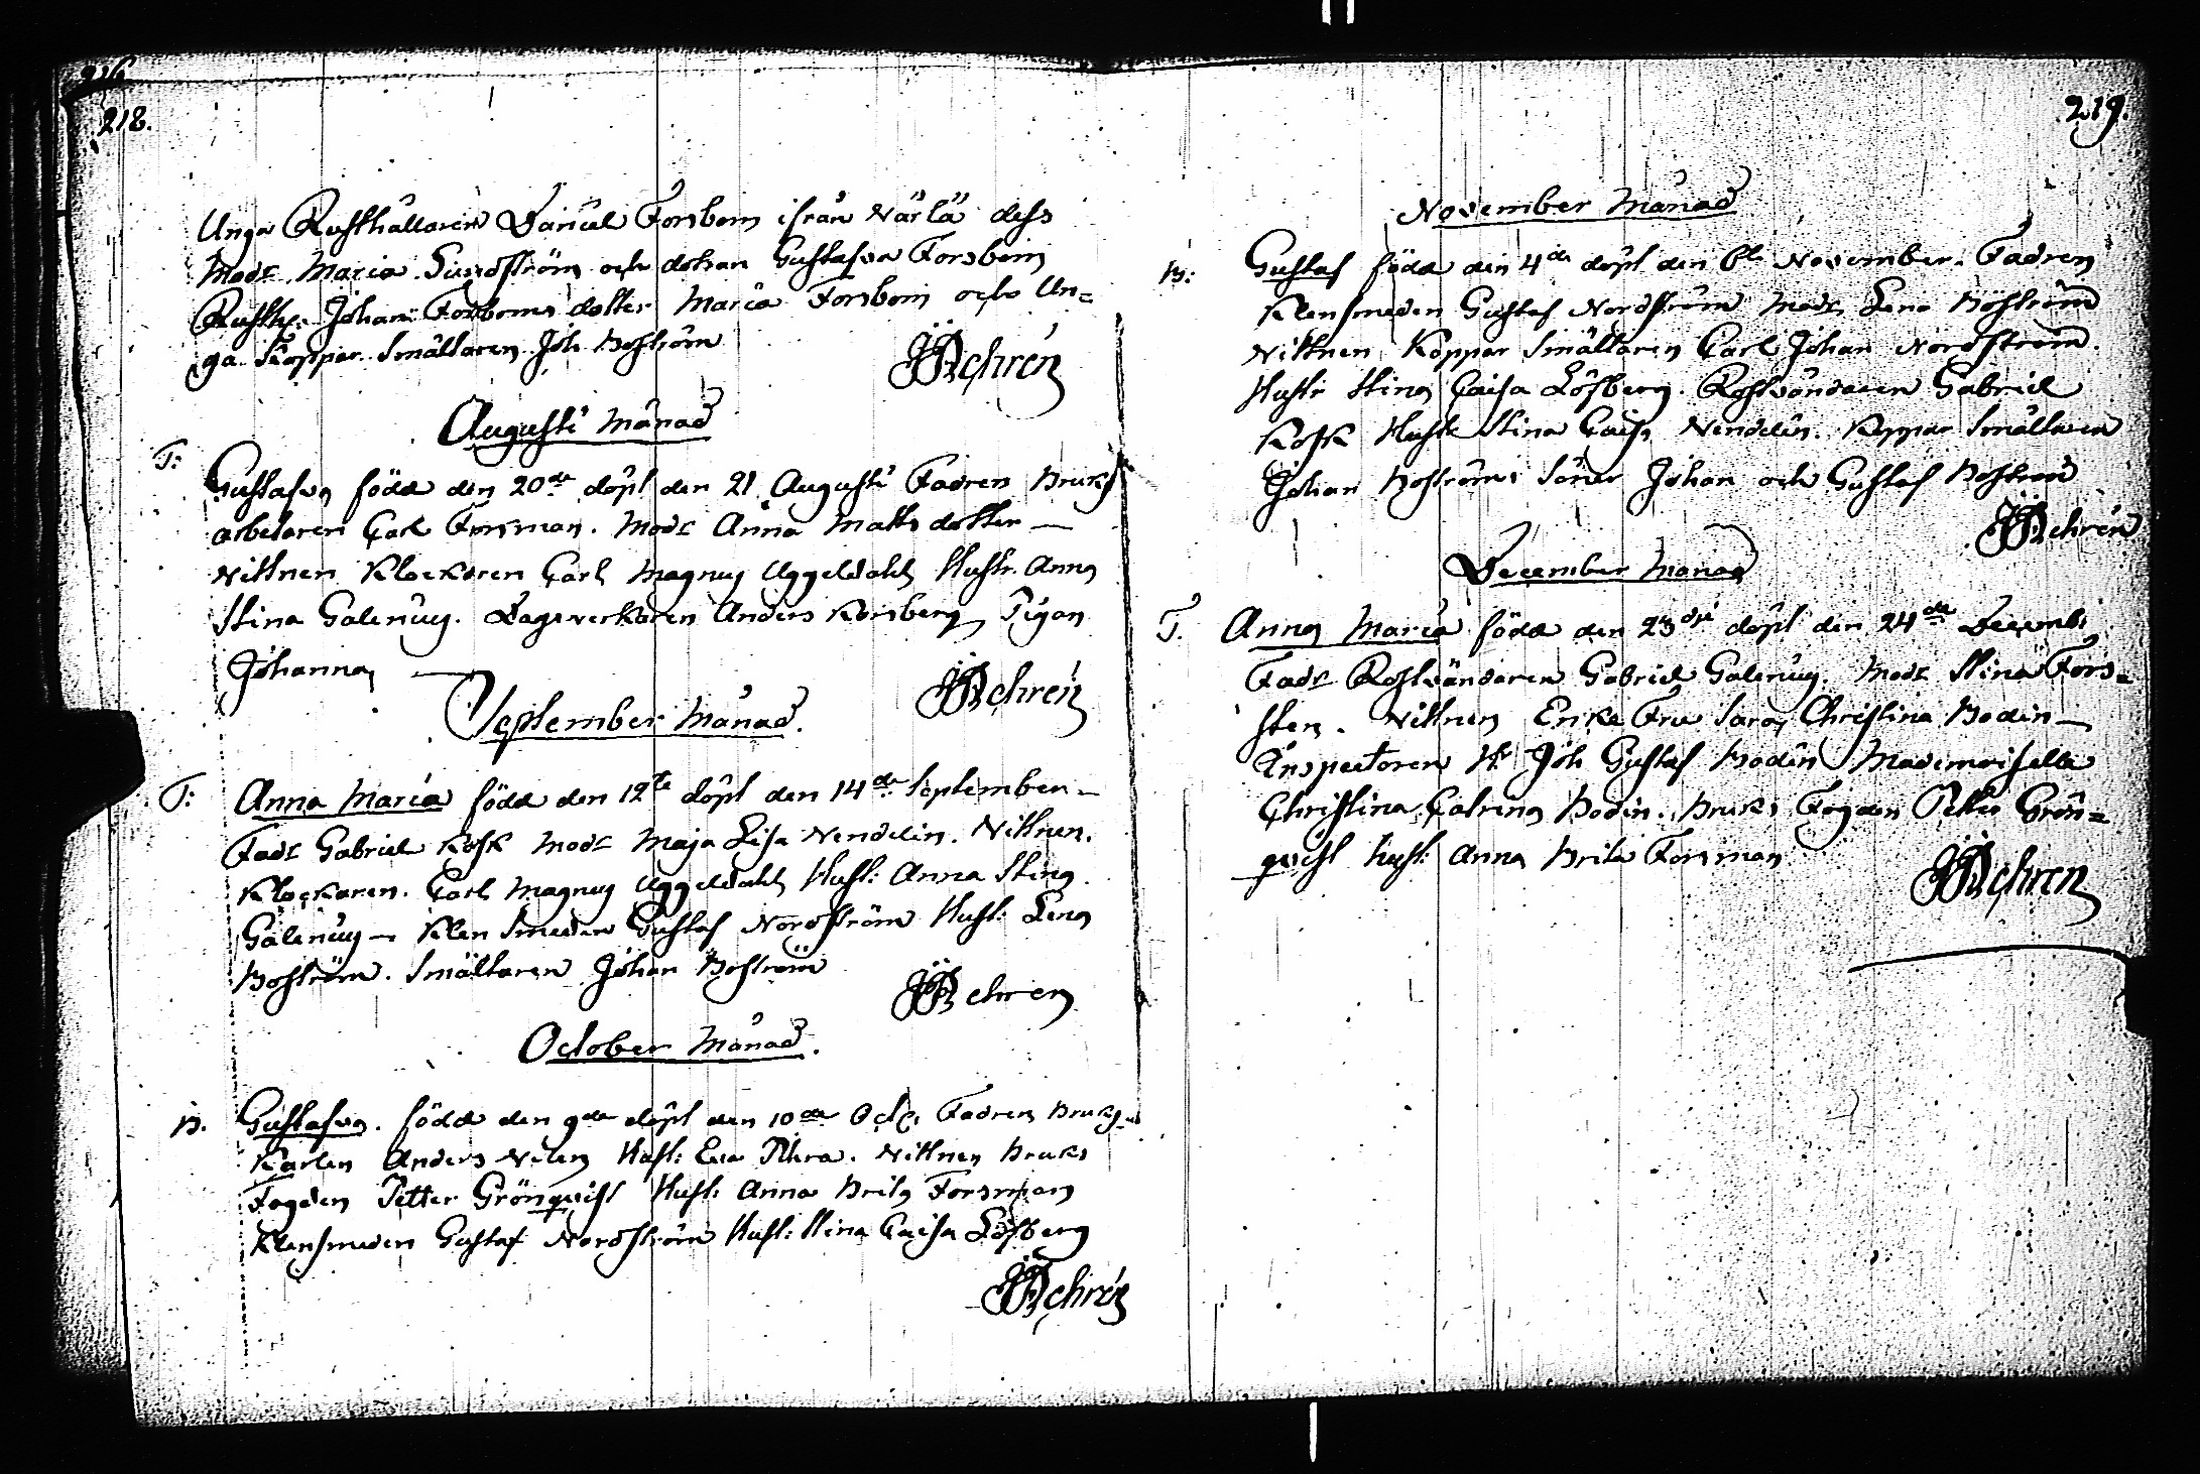 218.
Unga Rusthållaren Daniel Forsbom ifrån Närlä dess
Modr Maria Lindström och dotran Gustafva Forsbom
Rusth: Johan Forsboms dotter Maria Forsbom och Un=
ga Koppar Smältaren Joh Boström
JJDehrén
Augusti Månad
F: Gustafva född den 20de döpt den 21 Augusti Fadren Bruks
arbetaren Carl Forsman. Modr Anna Matts dotter —
Vittnen Klockaren Carl Magnus Uggeldahl Hustr. Anna
Stina Galenius. Dagsverkaren Anders Korsberg Pigan
Johanna —
JJDehrén
September Månad.
F: Anna Maria född den 12te döpt den 14de September —
Fadr Gabriel Kosk Modr Maja Lisa Vendelin. Vittnen.
Klockaren. Carl Magnus Uggeldahl Hust: Anna Stina
Galenius — Klen Smeden Gustaf Nordström Hust: Lena
Boström. Smältaren Johan Boström
JJDehren
October Månad.
B. Gustafva. född den 9de döpt den 10de Oct: Fadren Bruks
Karlen Anders Hust: Eva. Vittnen Bruks
Fogden Petter Grönqvist Hust: Anna Brita Forsman
Klensmeden Gustaf Nordström Hust: Stina Caisa Löfberg
JJDehrén
219.
November Månad
B: Gustaf född den 4de döpt den 6te November. Fadren
Klensmeden Gustaf Nordström Modr Lena Boström
Vittnen Koppar Smältaren Carl Johan Nordström.
Hustr Stina Caisa Löfberg. Rostvändaren Gabriel
Kosk Hustr Stina Caisa Vendelin. Koppar Smältaren
Johan Boströms Söner Johan och Gustaf Boström
JJDehrén
December Månad
F. Anna Maria född den 23die döpt den 24de Decemb:
Fadr Rostvändaren Gabriel Galenius. Modr Stina Fors=
sten. Vittnen Enke Fru Sara Christina Bodin —
Inspectoren Hr Joh Gustaf Bodin Mademoiselle
Christina Catrina Bodin. Bruks Fogden Petter Grön=
qvist Hust: Anna Brita Forsman
JJDehren